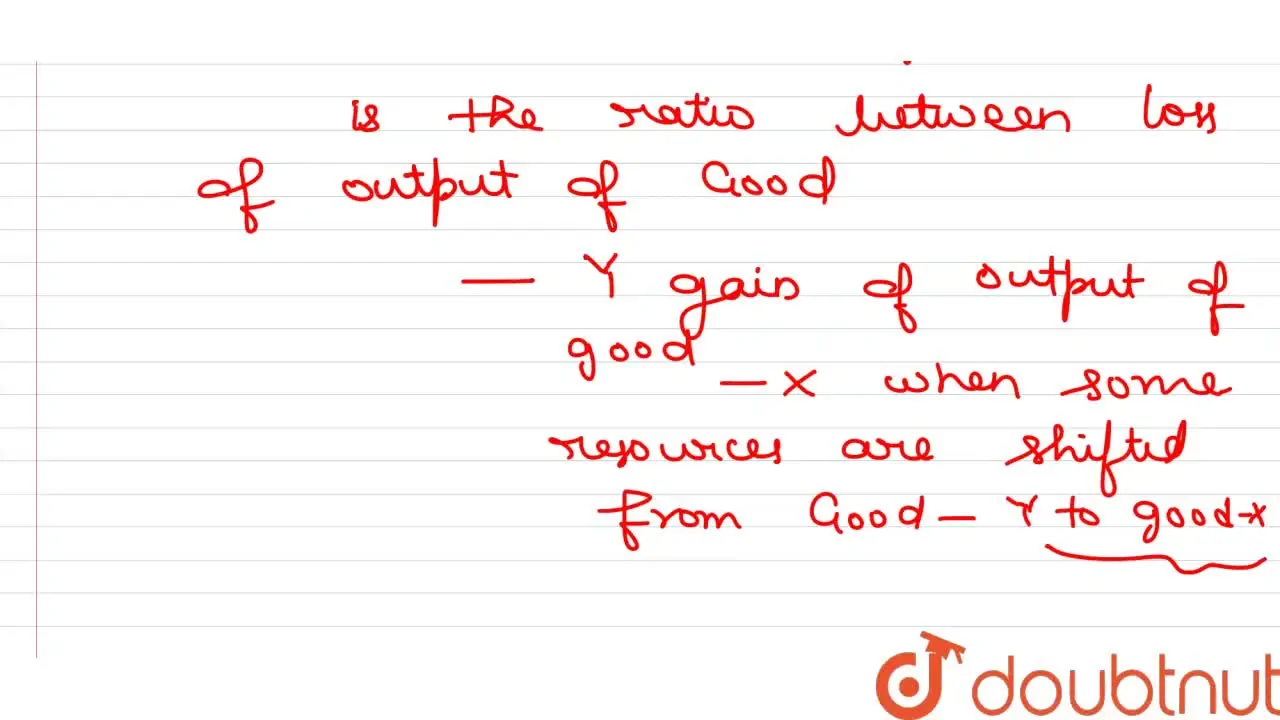 is the ratio between loss
of output of Good
— Y gain of output of
good
— X when some
resources are shifted
from Good — Y to good-X
doubtnut